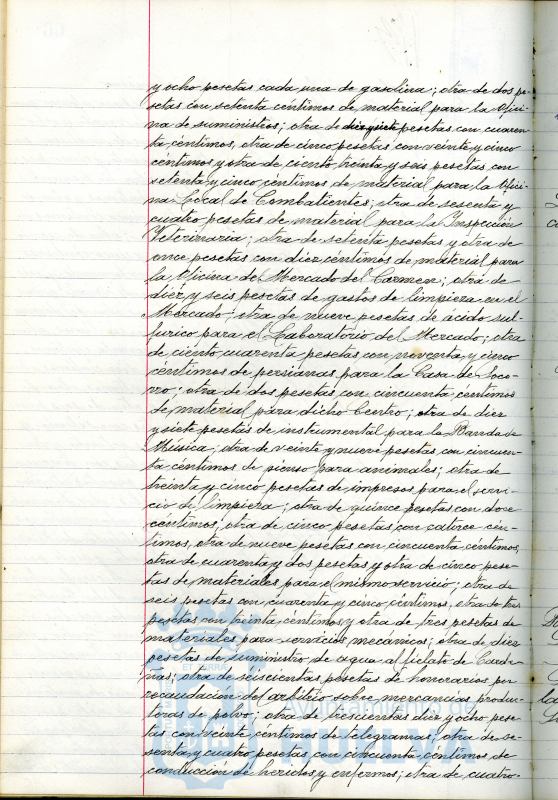 y ocho pesetas cada una de gasolina; otra de dos pe-
setas con setenta céntimos de material para la Ofici-
na de suministros; otra de diez y siete pesetas con cuaren-
ta céntimos, otra de cinco pesetas con veinte y cinco
céntimos y otra de ciento treinta y seis pesetas con
setenta y cinco céntimos de material para la Ofici-
na Local de Combatientes; otra de sesenta y
cuatro pesetas de material para la Inspección
Veterinaria; otra de setenta pesetas y otra de
once pesetas con diez céntimos de material para
la Oficina del Mercado del Carmen; otra de
diez y seis pesetas de gastos de limpieza en el
Mercado; otra de nueve pesetas de ácido sul-
furico para el Laboratorio del Mercado; otra
de ciento cuarenta pesetas con noventa y cinco
céntimos de persianas para la Casa de Soco-
rro; otra de dos pesetas con cincuenta céntimos
de material para dicho Centro; otra de diez
y siete pesetas de instrumental para la Banda de
Música; otra de veinte y nueve pesetas con cincuen-
ta céntimos de pienso para animales; otra de
treinta y cinco pesetas de impresos para el servi-
cio de limpieza; otra de quince pesetas con doce
céntimos, otra de cinco pesetas con catorce cén-
timos, otra de nueve pesetas con cincuenta céntimos,
otra de cuarenta y dos pesetas y otra de cinco pese-
tas de materiales para el mismo servicio; otra de
seis pesetas con cuarenta y cinco céntimos, otra de tres
pesetas con treinta céntimos y otra de tres pesetas de
materiales para servicios mecanicos; otra de diez
pesetas de suministro de agua al fielato de Carde-
ñas; otra de seiscientas pesetas de honorarios por
recaudación del arbitrio sobre mercancias produc-
toras de polvo; otra de trescientas diez y ocho pese-
tas con veinte céntimos de telegramas, otra de se-
senta y cuatro pesetas con cincuenta céntimos de
conducción de heridos y enfermos; otra de cuatro-
ET TERRA
Ayuntamiento de